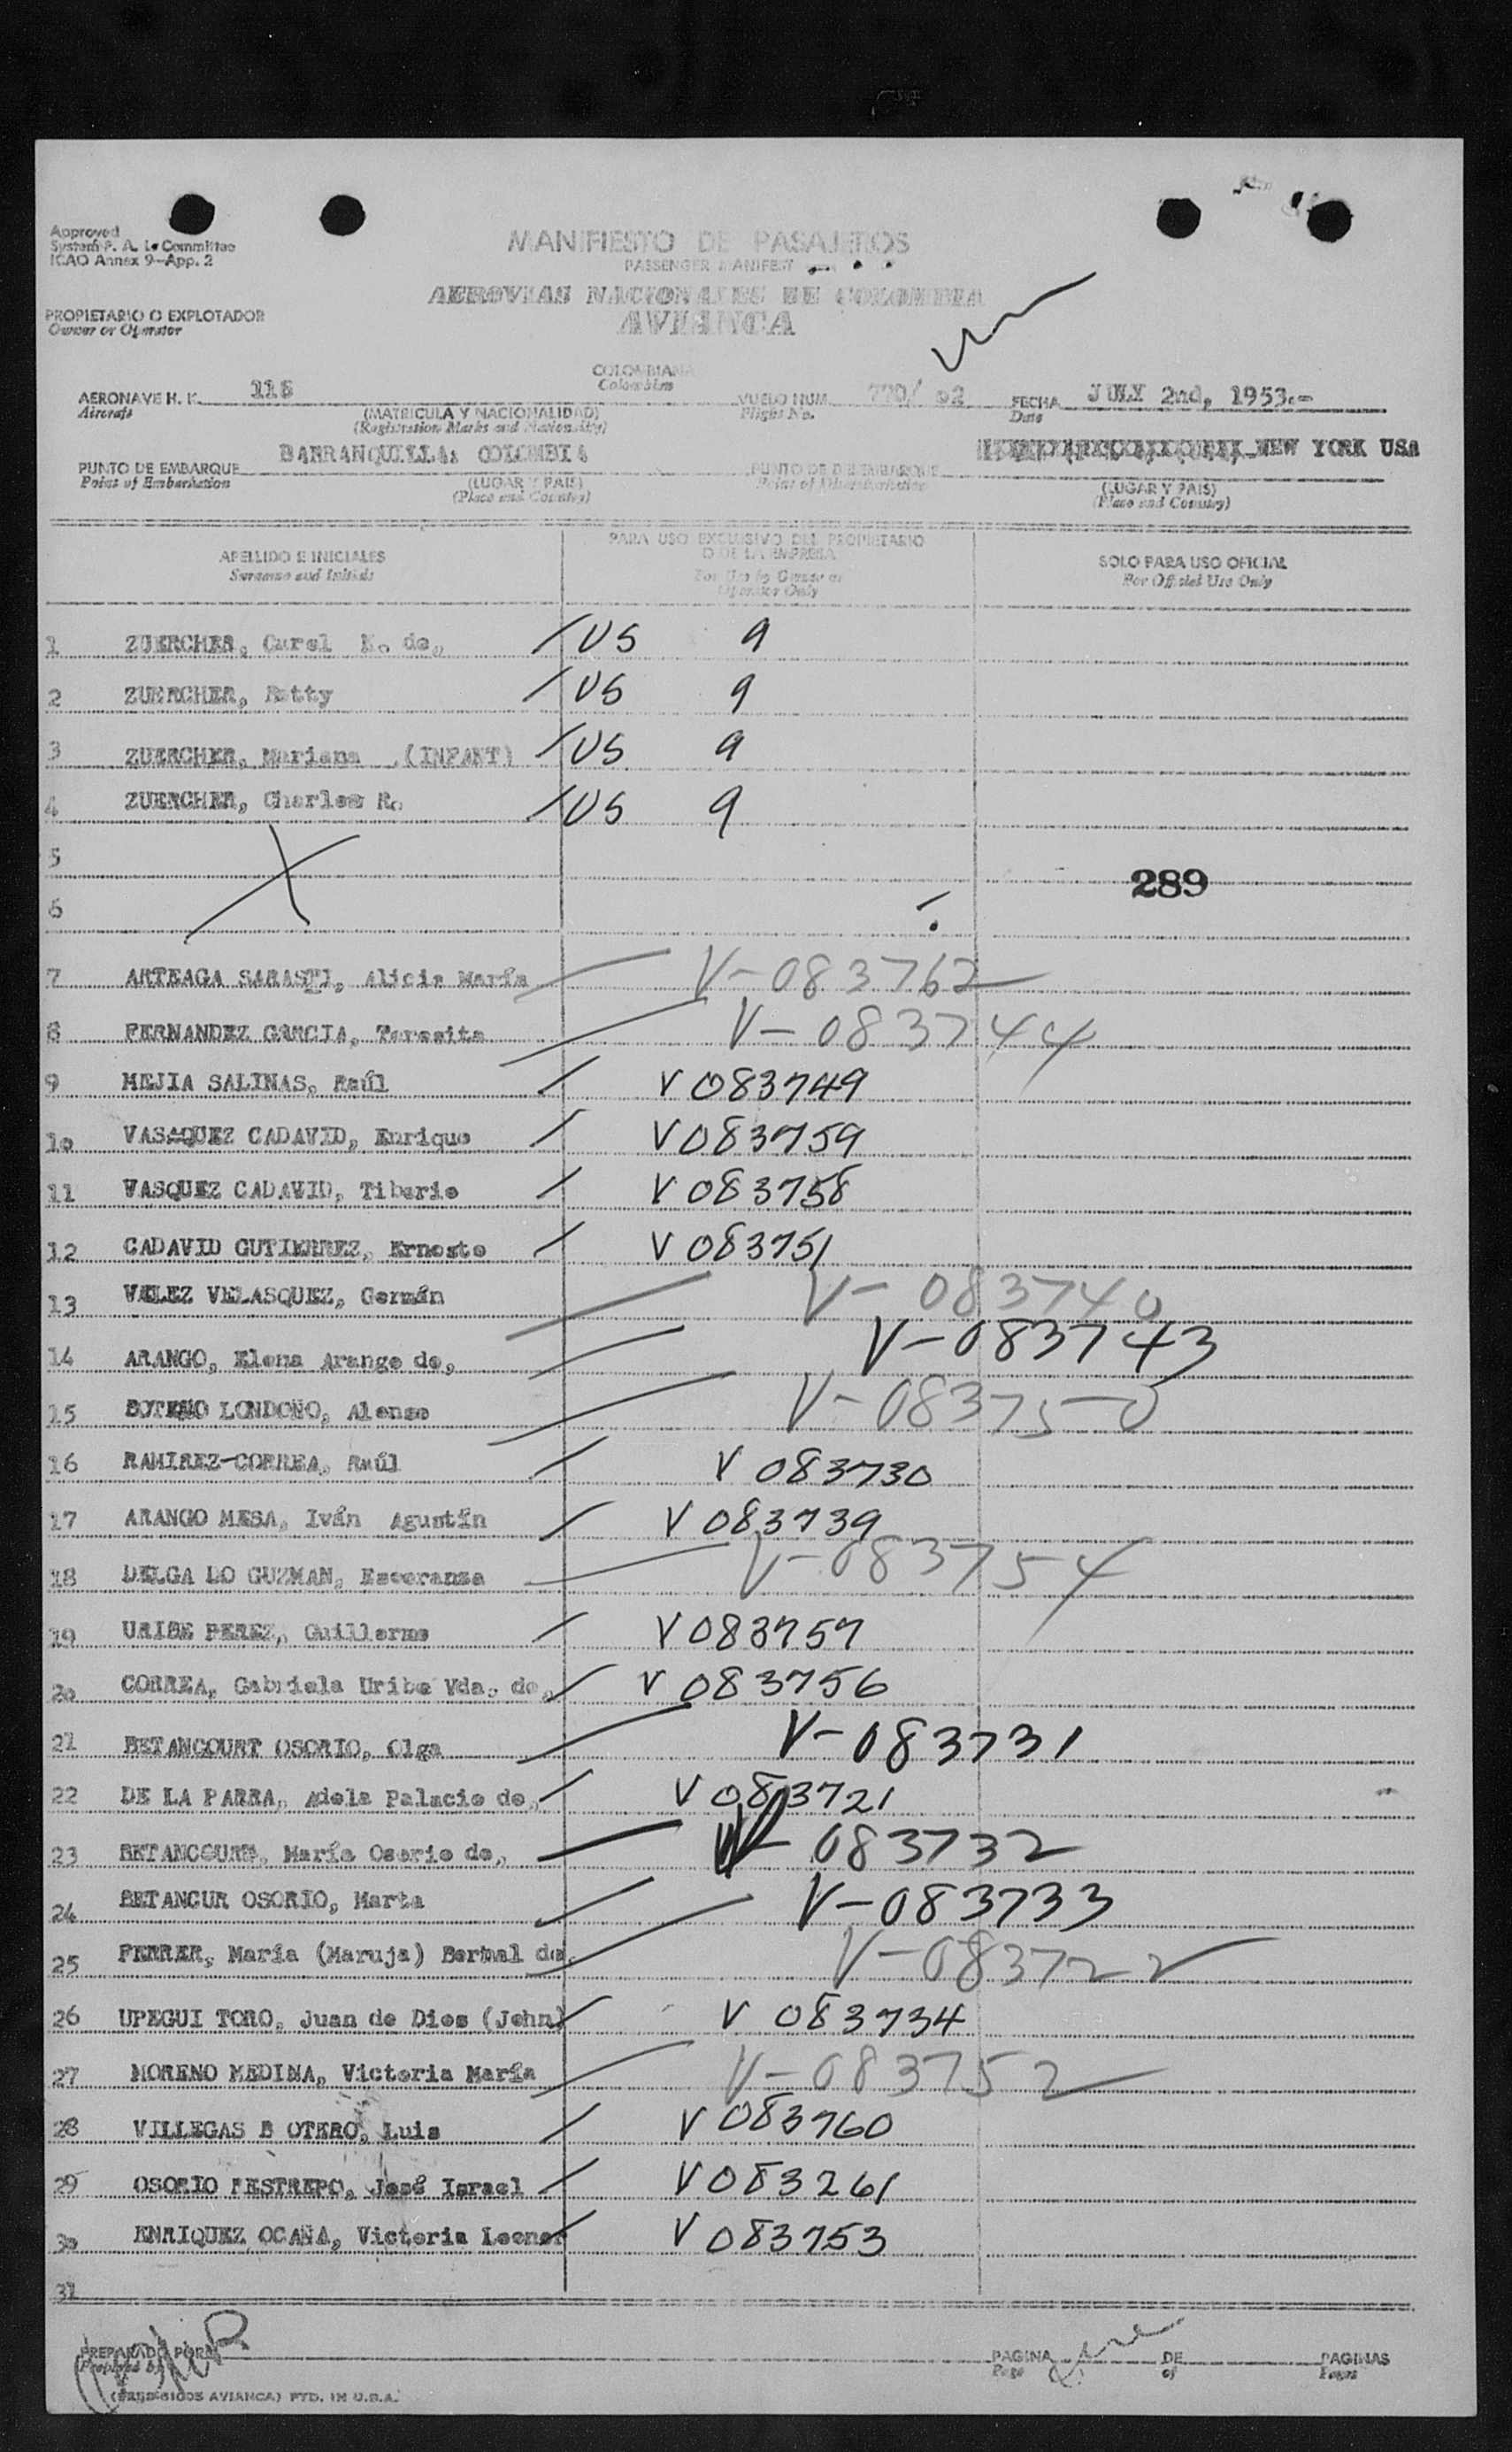 Approved
System F. A. L. Committee
ICAO Annex 9-App. 2
MANIFIESTO DE PASAJEROS
PASSENGER MANIFEST
AEROVIAS NACIONALES DE COLOMBIA
AVIANCA
PROPIETARIO O EXPLOTADOR
Owner or Operator
COLOMBIANA
Colombian
AERONAVE H. K. 115 VUELO NUM. 770/ 52 FECHA JULY 2nd, 1953.-
Aircraft (MATRICULA Y NACIONALIDAD) Flight No. Date
(Registration Marks and Nationality)
PUNTO DE EMBARQUE BARRANQUILLA: COLOMBIA PUNTO DE DESEMBARQUE NEW YORK USA
Point of Embarkation (LUGAR Y PAIS) Point of Disembarkation (LUGAR Y PAIS)
(Place and Country) (Place and Country)
APELLIDO E INICIALES PARA USO EXCLUSIVO DEL PROPIETARIO O DE LA EMPRESA SOLO PARA USO OFICIAL
Surname and Initials For Use by Owner or Operator Only For Official Use Only
1 ZUERCHER, Carol E. de, / US 9
2 ZUERCHER, Betty / US 9
3 ZUERCHER, Mariana (INFANT) / US 9
4 ZUERCHER, Charles R. / US 9
5
289
6
7 ARTEAGA SARASTI, Alicia María V-083762
8 FERNANDEZ GARCIA, Teresita V-083744
9 MEJIA SALINAS, Raúl / V 083749
10 VASQUEZ CADAVID, Enrique / V 083759
11 VASQUEZ CADAVID, Tiberio / V 083758
12 CADAVID GUTIERREZ, Ernesto / V 083751
13 VELEZ VELASQUEZ, Germán V-083740
14 ARANGO, Elena Arango de, V-083743
15 BOTERO LONDOÑO, Alonso V-083750
16 RAMIREZ-CORREA, Raúl / V 083730
17 ARANGO MESA, Iván Agustín / V 083739
18 DELGA DO GUZMAN, Esperanza V-083754
19 URIBE PEREZ, Guillermo / V 083757
20 CORREA, Gabriela Uribe Vda. de, / V 083756
21 BETANCOURT OSORIO, Olga V-083731
22 DE LA PARRA, Adela Palacio de, / V 083721
23 BETANCOURT, María Osorio de, V-083732
24 BETANCUR OSORIO, Marta V-083733
25 FERRER, María (Maruja) Bernal de, V-083722
26 UPEGUI TORO, Juan de Dios (John) / V 083734
27 MORENO MEDINA, Victoria María V-083752
28 VILLEGAS B OTERO, Luis / V 083760
29 OSORIO RESTREPO, José Israel / V 083261
30 ENRIQUEZ OCAÑA, Victoria Leonor / V 083753
31
PREPARADO POR PAGINA DE PAGINAS
Prepared by Page of Pages
AVIANCA) PTD. IN U.S.A.